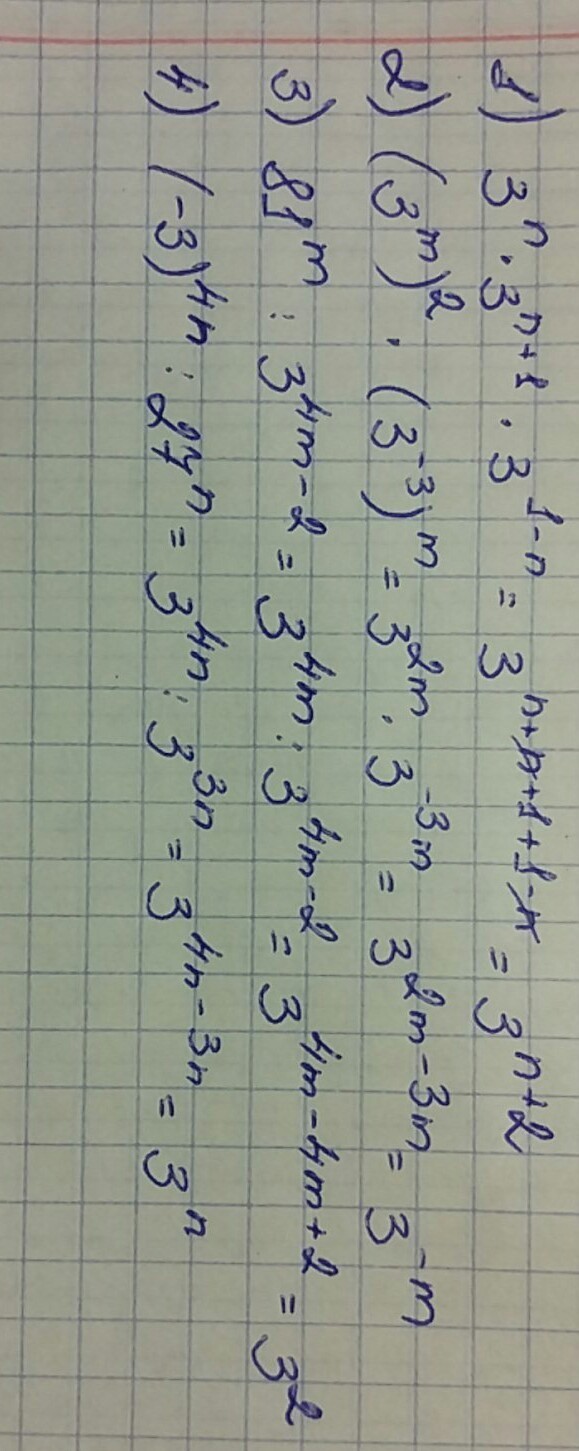 1) 3ⁿ · 3ⁿ⁺¹ · 3¹⁻ⁿ = 3ⁿ⁺ⁿ⁺¹⁺¹⁻ⁿ = 3ⁿ⁺²
2) (3ᵐ)² · (3⁻³)ᵐ = 3²ᵐ · 3⁻³ᵐ = 3²ᵐ⁻³ᵐ = 3⁻ᵐ
3) 81ᵐ : 3⁴ᵐ⁻² = 3⁴ᵐ : 3⁴ᵐ⁻² = 3⁴ᵐ⁻⁴ᵐ⁺² = 3²
4) (-3)⁴ⁿ : 27ⁿ = 3⁴ⁿ : 3³ⁿ = 3⁴ⁿ⁻³ⁿ = 3ⁿ